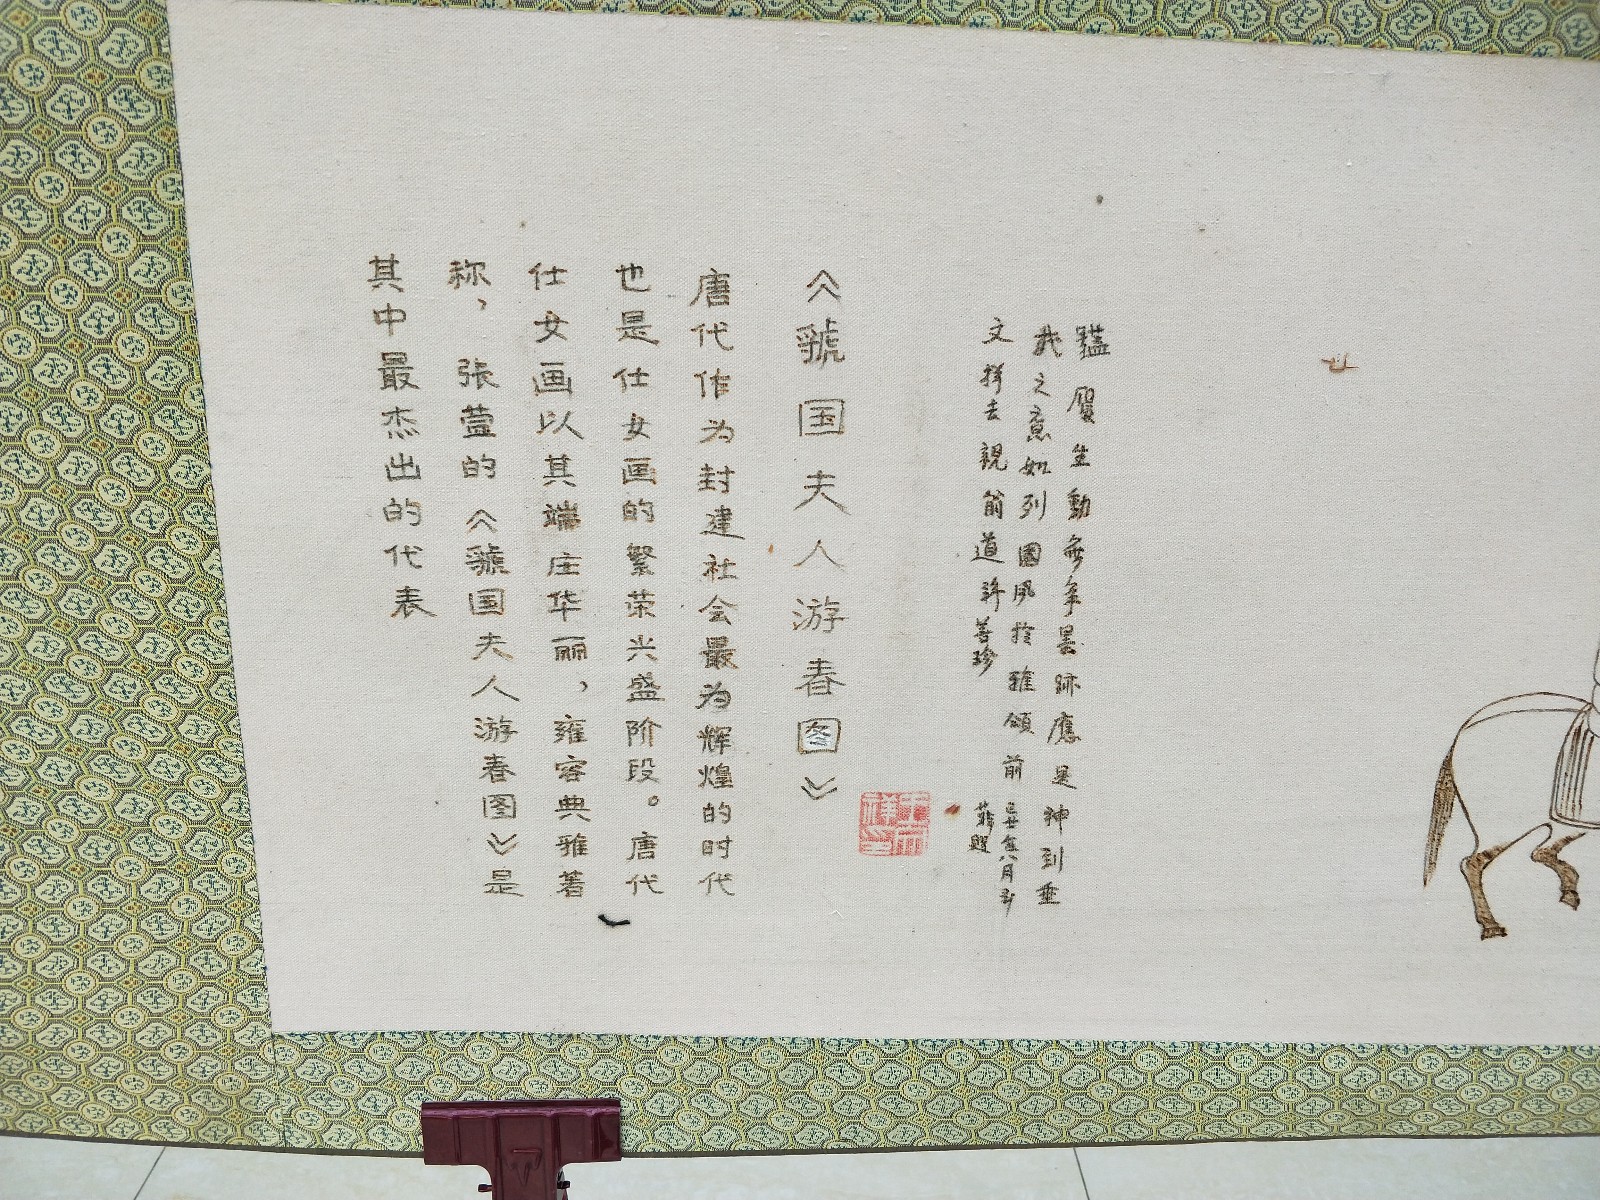 韫质生動無年墨跡應是神到垂
我之意如列國風於雅頌前
文择去視翁道許善珍
己丑年八月
《虢国夫人游春图》
唐代作为封建社会最为辉煌的时代
也是仕女画的繁荣兴盛阶段。唐代
仕女画以其端庄华丽，雍容典雅著
称，张萱的《虢国夫人游春图》是
其中最杰出的代表